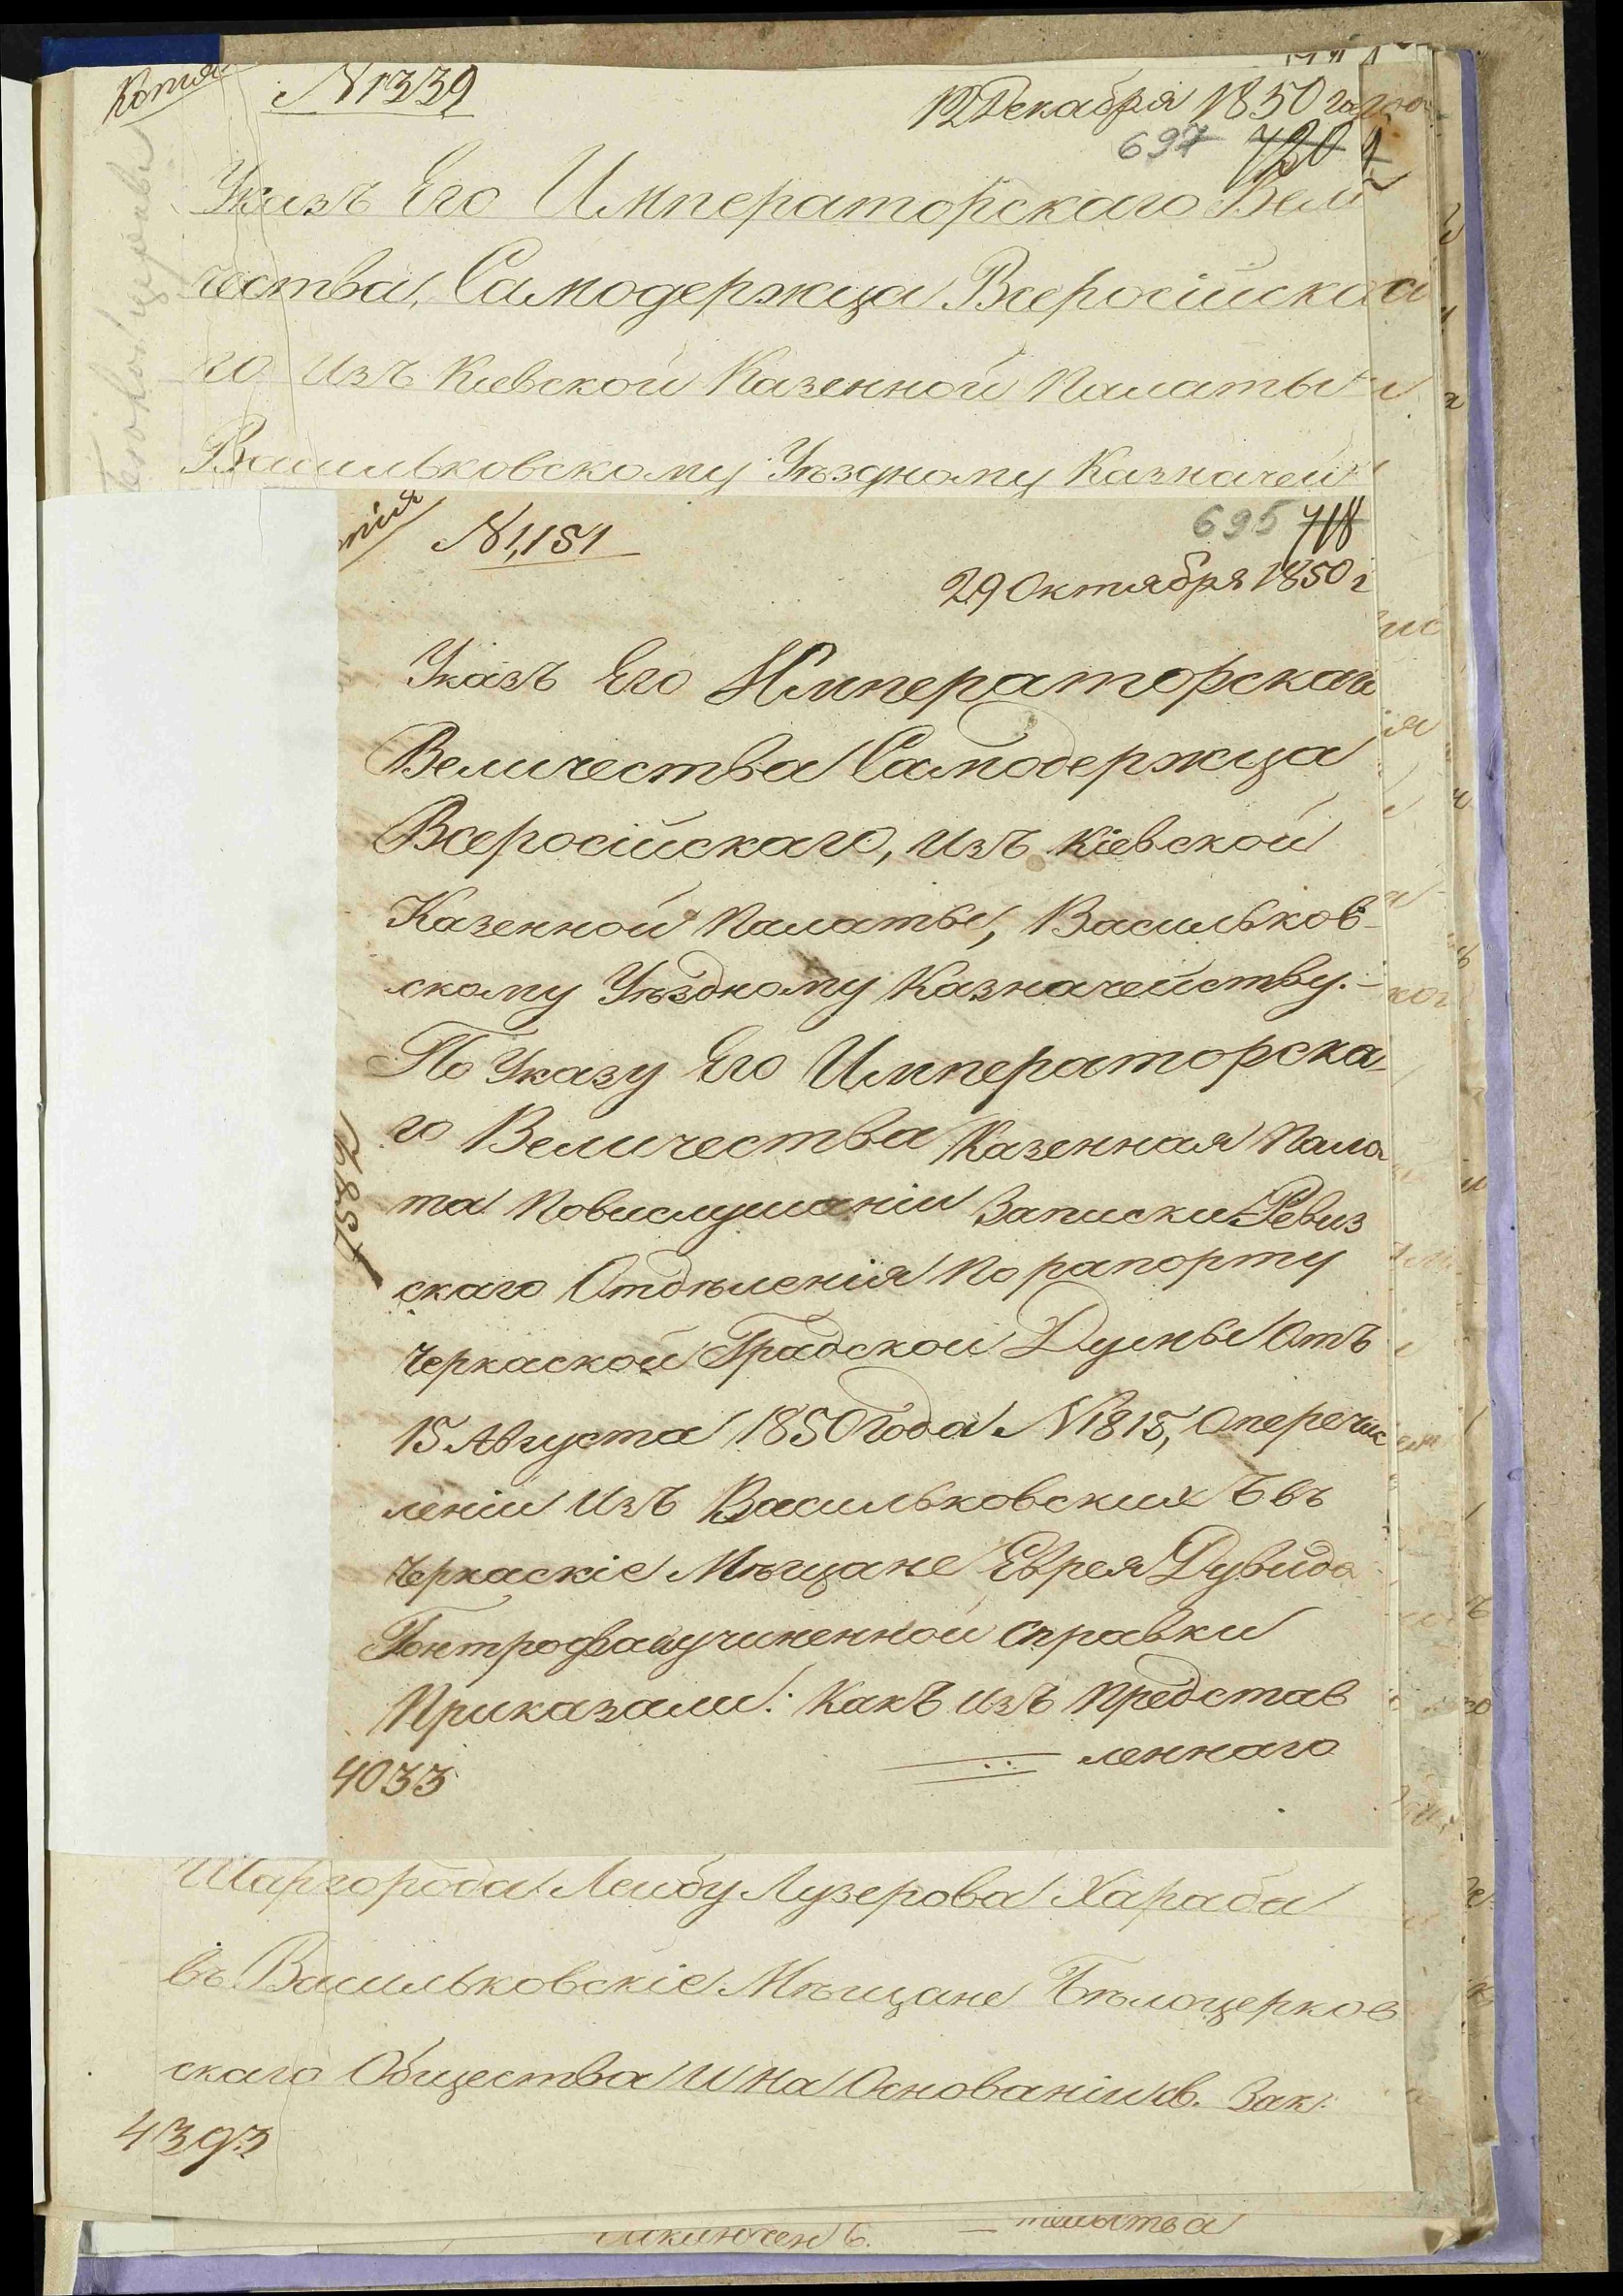 Копія
№ 1339
12 Декабря 1850 года
697 720
Указъ Его Императорскаго Вели
чества, Самодержца Всеросійска
го изъ Кіевской Казенной Палаты
Васильковскому Уѣздному Казначей
№ 1,151
695 718
29 Октября 1850 г
Указъ Его Императорскаго
Величества Самодержца
Всеросійскаго, изъ Кіевской
Казенной Палаты, Васильков-
скому Уѣздному Казначейству.-
По Указу Его Императорска
го Величества Казенная Пала
та повислушаніи Записки Ревиз
скаго Отдѣленія по рапорту
Черкаской Градской Думы отъ
15 Августа 1850 года № 1815, оперечис
леніи изъ Васильковскихъ въ
Черкаскіе Мѣщане Еврея Дувида
учиненной справки
Приказали: какъ изъ представ
леннаго
7589
4033
Шаргорода Лейбу Лузерова Хараба
въ Васильковскіе Мѣщане Бѣлоцерков
скаго Общества и на Основаніи св. Зак.
4393